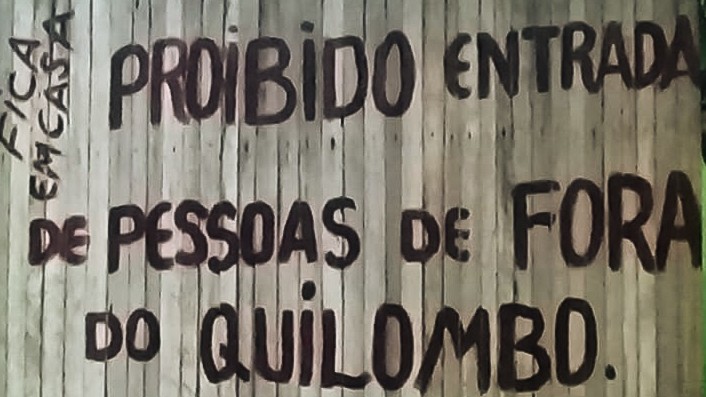 FICA
EM CASA
PROiBiDO ENTRADA
DE PESSOAS DE FORA
DO QUiLOMBO.